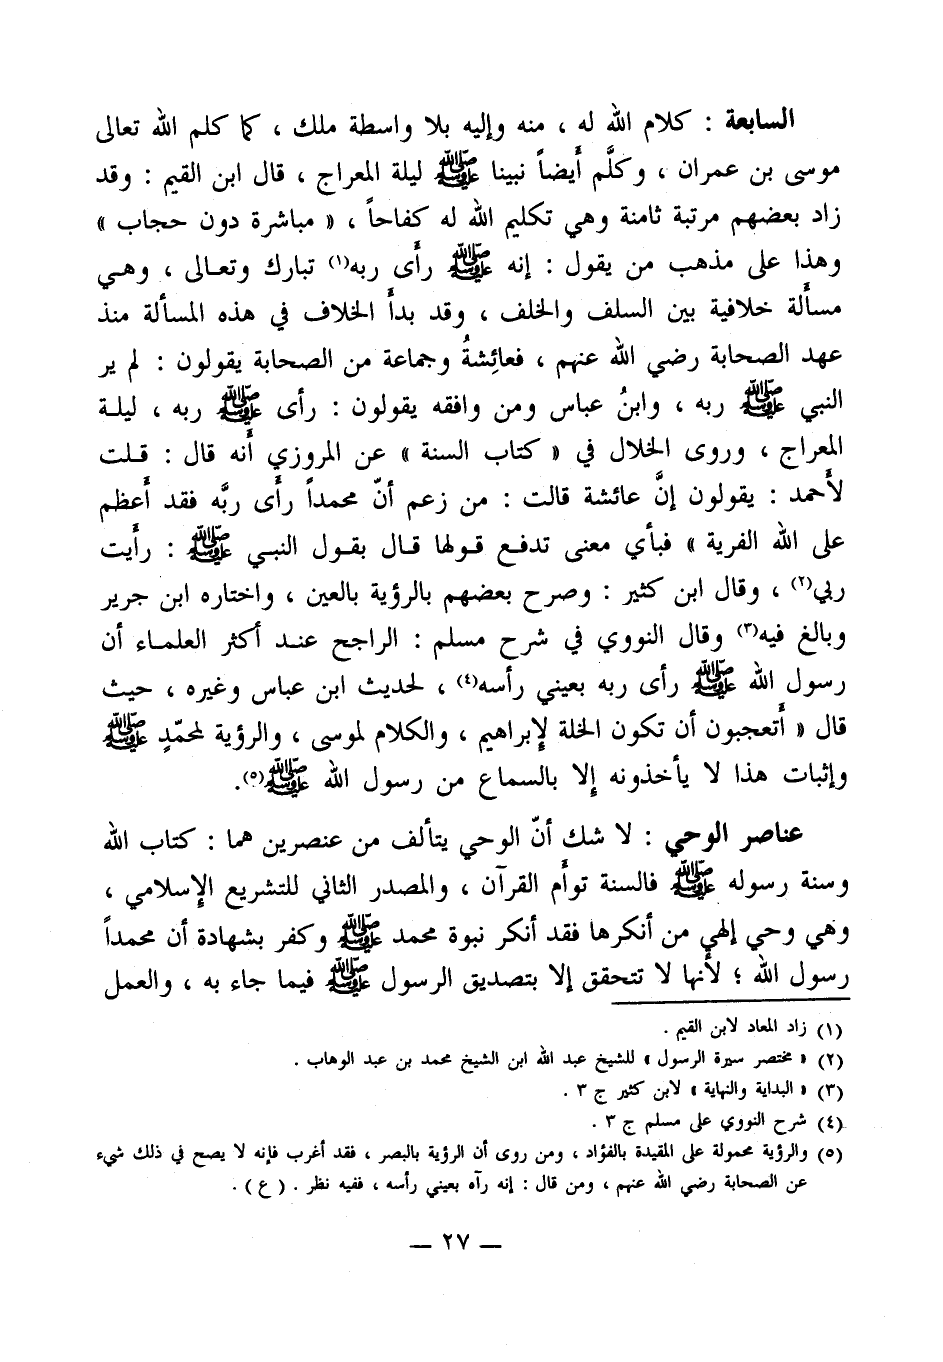 السابعة : كلام الله له ، منه وإليه بلا واسطة ملك ، كما كلم الله تعالى
موسى بن عمران ، وكلَّم أيضاً نبينا ﷺ ليلة المعراج ، قال ابن القيم : وقد
زاد بعضهم مرتبة ثامنة وهي تكليم الله له كفاحاً ، « مباشرة دون حجاب »
وهذا على مذهب من يقول : إنه ﷺ رأى ربه(١) تبارك وتعالى ، وهي
مسألة خلافية بين السلف والخلف ، وقد بدأ الخلاف في هذه المسألة منذ
عهد الصحابة رضي الله عنهم ، فعائِشةُ وجماعة من الصحابة يقولون : لم ير
النبي ﷺ ربه ، وابنُ عباس ومن وافقه يقولون : رأى ﷺ ربه ، ليلة
المعراج ، وروى الخلال في « كتاب السنة » عن المروزي أنه قال : قلت
لأحمد : يقولون إنَّ عائشة قالت : من زعم أنّ محمداً رأى ربَّه فقد أعظم
على الله الفرية » فبأي معنى تدفع قولها قال بقول النبي ﷺ : رأيت
ربي(٢) ، وقال ابن كثير : وصرح بعضهم بالرؤية بالعين ، واختاره ابن جرير
وبالغ فيه(٣) وقال النووي في شرح مسلم : الراجح عند أكثر العلماء أن
رسول الله ﷺ رأى ربه بعيني رأسه(٤) ، لحديث ابن عباس وغيره ، حيث
قال « أتعجبون أن تكون الخلة لإبراهيم ، والكلام لموسى ، والرؤية لمحمّدٍ ﷺ
وإثبات هذا لا يأخذونه إلا بالسماع من رسول الله ﷺ(٥).
عناصر الوحي : لا شك أنّ الوحي يتألف من عنصرين هما : كتاب الله
وسنة رسوله ﷺ فالسنة توأم القرآن ، والمصدر الثاني للتشريع الإسلامي ،
وهي وحي إلهي من أنكرها فقد أنكر نبوة محمد ﷺ وكفر بشهادة أن محمداً
رسول الله ؛ لأنها لا تتحقق إلا بتصديق الرسول ﷺ فيما جاء به ، والعمل
(١) زاد المعاد لابن القيم .
(٢) « مختصر سيرة الرسول » للشيخ عبد الله ابن الشيخ محمد بن عبد الوهاب .
(٣) « البداية والنهاية » لابن كثير ج ٣ .
(٤) شرح النووي على مسلم ج ٣ .
(٥) والرؤية محمولة على المقيدة بالفؤاد ، ومن روى أن الرؤية بالبصر ، فقد أغرب فإنه لا يصح في ذلك شيء
عن الصحابة رضي الله عنهم ، ومن قال : إنه رآه بعيني رأسه ، ففيه نظر . ( ع ) .
— ٢٧ —